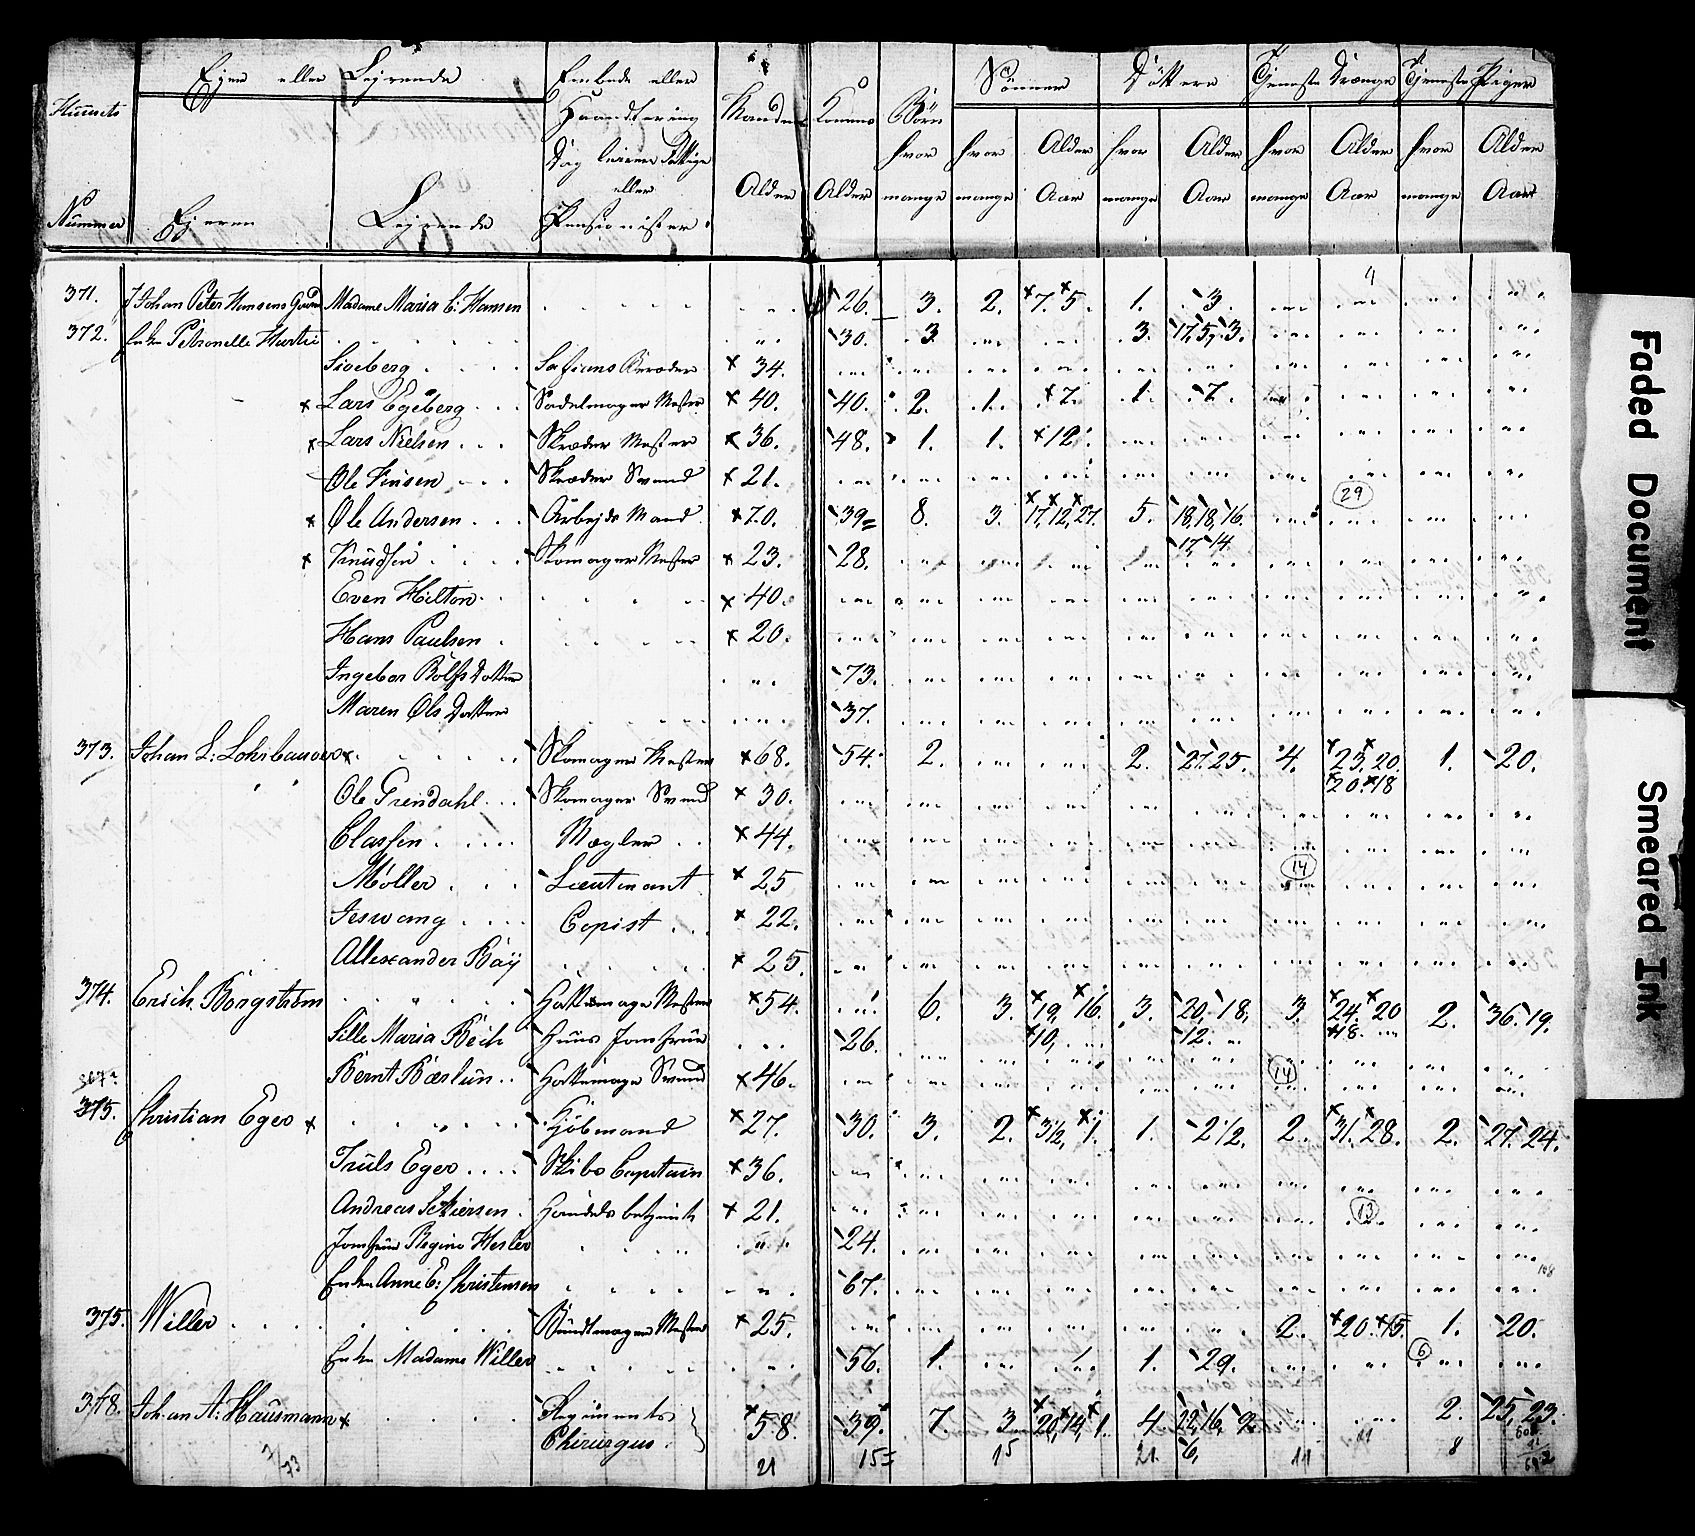 Huusets Nummer | Ejere eller Lejerende | Embede eller Haandtering Dag leiere Fattige eller Pensionister | Mandens Alder | Konens Alder | Börn hvor mange | Sönner | Döttere | Tjeneste Drænge | Tjeneste Piger
Ejeren | Lejrende | hvor mange | Alder Aar | hvor mange | Alder Aar | hvor mange | Alder Aar | hvor mange | Alder Aar
4
371. Johan Peter Hansens Madame Maria C: Hansen 26. 3. 2. 7. 5. 1. 3.
372. Enke Petronelle 30. 3. 3. 17, 5, 3.
Sioeberg 34.
Lars Egeberg Sadelmager Mester 40. 40. 2. 1. 7. 1. 7.
Lars Nielsen Skræder Mester 36. 48. 1. 1. 12.
Ole Skræder Svend 21.
29
Ole Andersen Arbejds Mand 70. 39 8. 3. 17, 12, 27. 5. 18, 18, 16.
17, 14.
Knudsen Skomager Mester 23. 28.
Even Hilton 40.
Hans Paulsen 20.
Ingebor Rolfs Datter 73.
Maren Ols Datter 37.
373. Johan L: Lohrbauer Skomager Mester 68. 54. 2. 2. 27. 25. 4. 23, 20. 1. 20.
20. 18
Ole Grendahl Skomager Svend 30.
Classen Mægler 44.
Møller Lieutenant 25
14
Jeswang Copist 22.
Allexander Bäy 25.
374. Erich Borgström Hattemager Mester 54. 6. 3. 19, 16. 3. 20, 18, 3. 24. 20 2. 36. 19.
Sille Maria Bech Huus Jomfrue 26. 10, 12. 18.
Bernt Hattemager Svend 46.
14
375. Christian Eger Kjöbmand 27. 30. 3. 2. 3 1/2, 1. 1. 2 1/2. 2. 31. 28. 2. 27. 24.
Truls Eger Skibs Capitain 36.
Andreas Handels betjent 21.
13
Jomfrue Regine Hesler 24.
Enke Anne C: Christensen 67.
375. Willer Mester 25. 2. 20. 15. 1. 20.
6
Enke Madame Willer 56. 1. 1. 29.
378. Johan A: Hausmann Regiments Chirurgus 58. 39. 7. 3 20, 14, 1. 4. 22, 16, 9. 2. 25, 23.
6,
21 15 15 21. 11 11 8
Faded Document
Smeared Ink